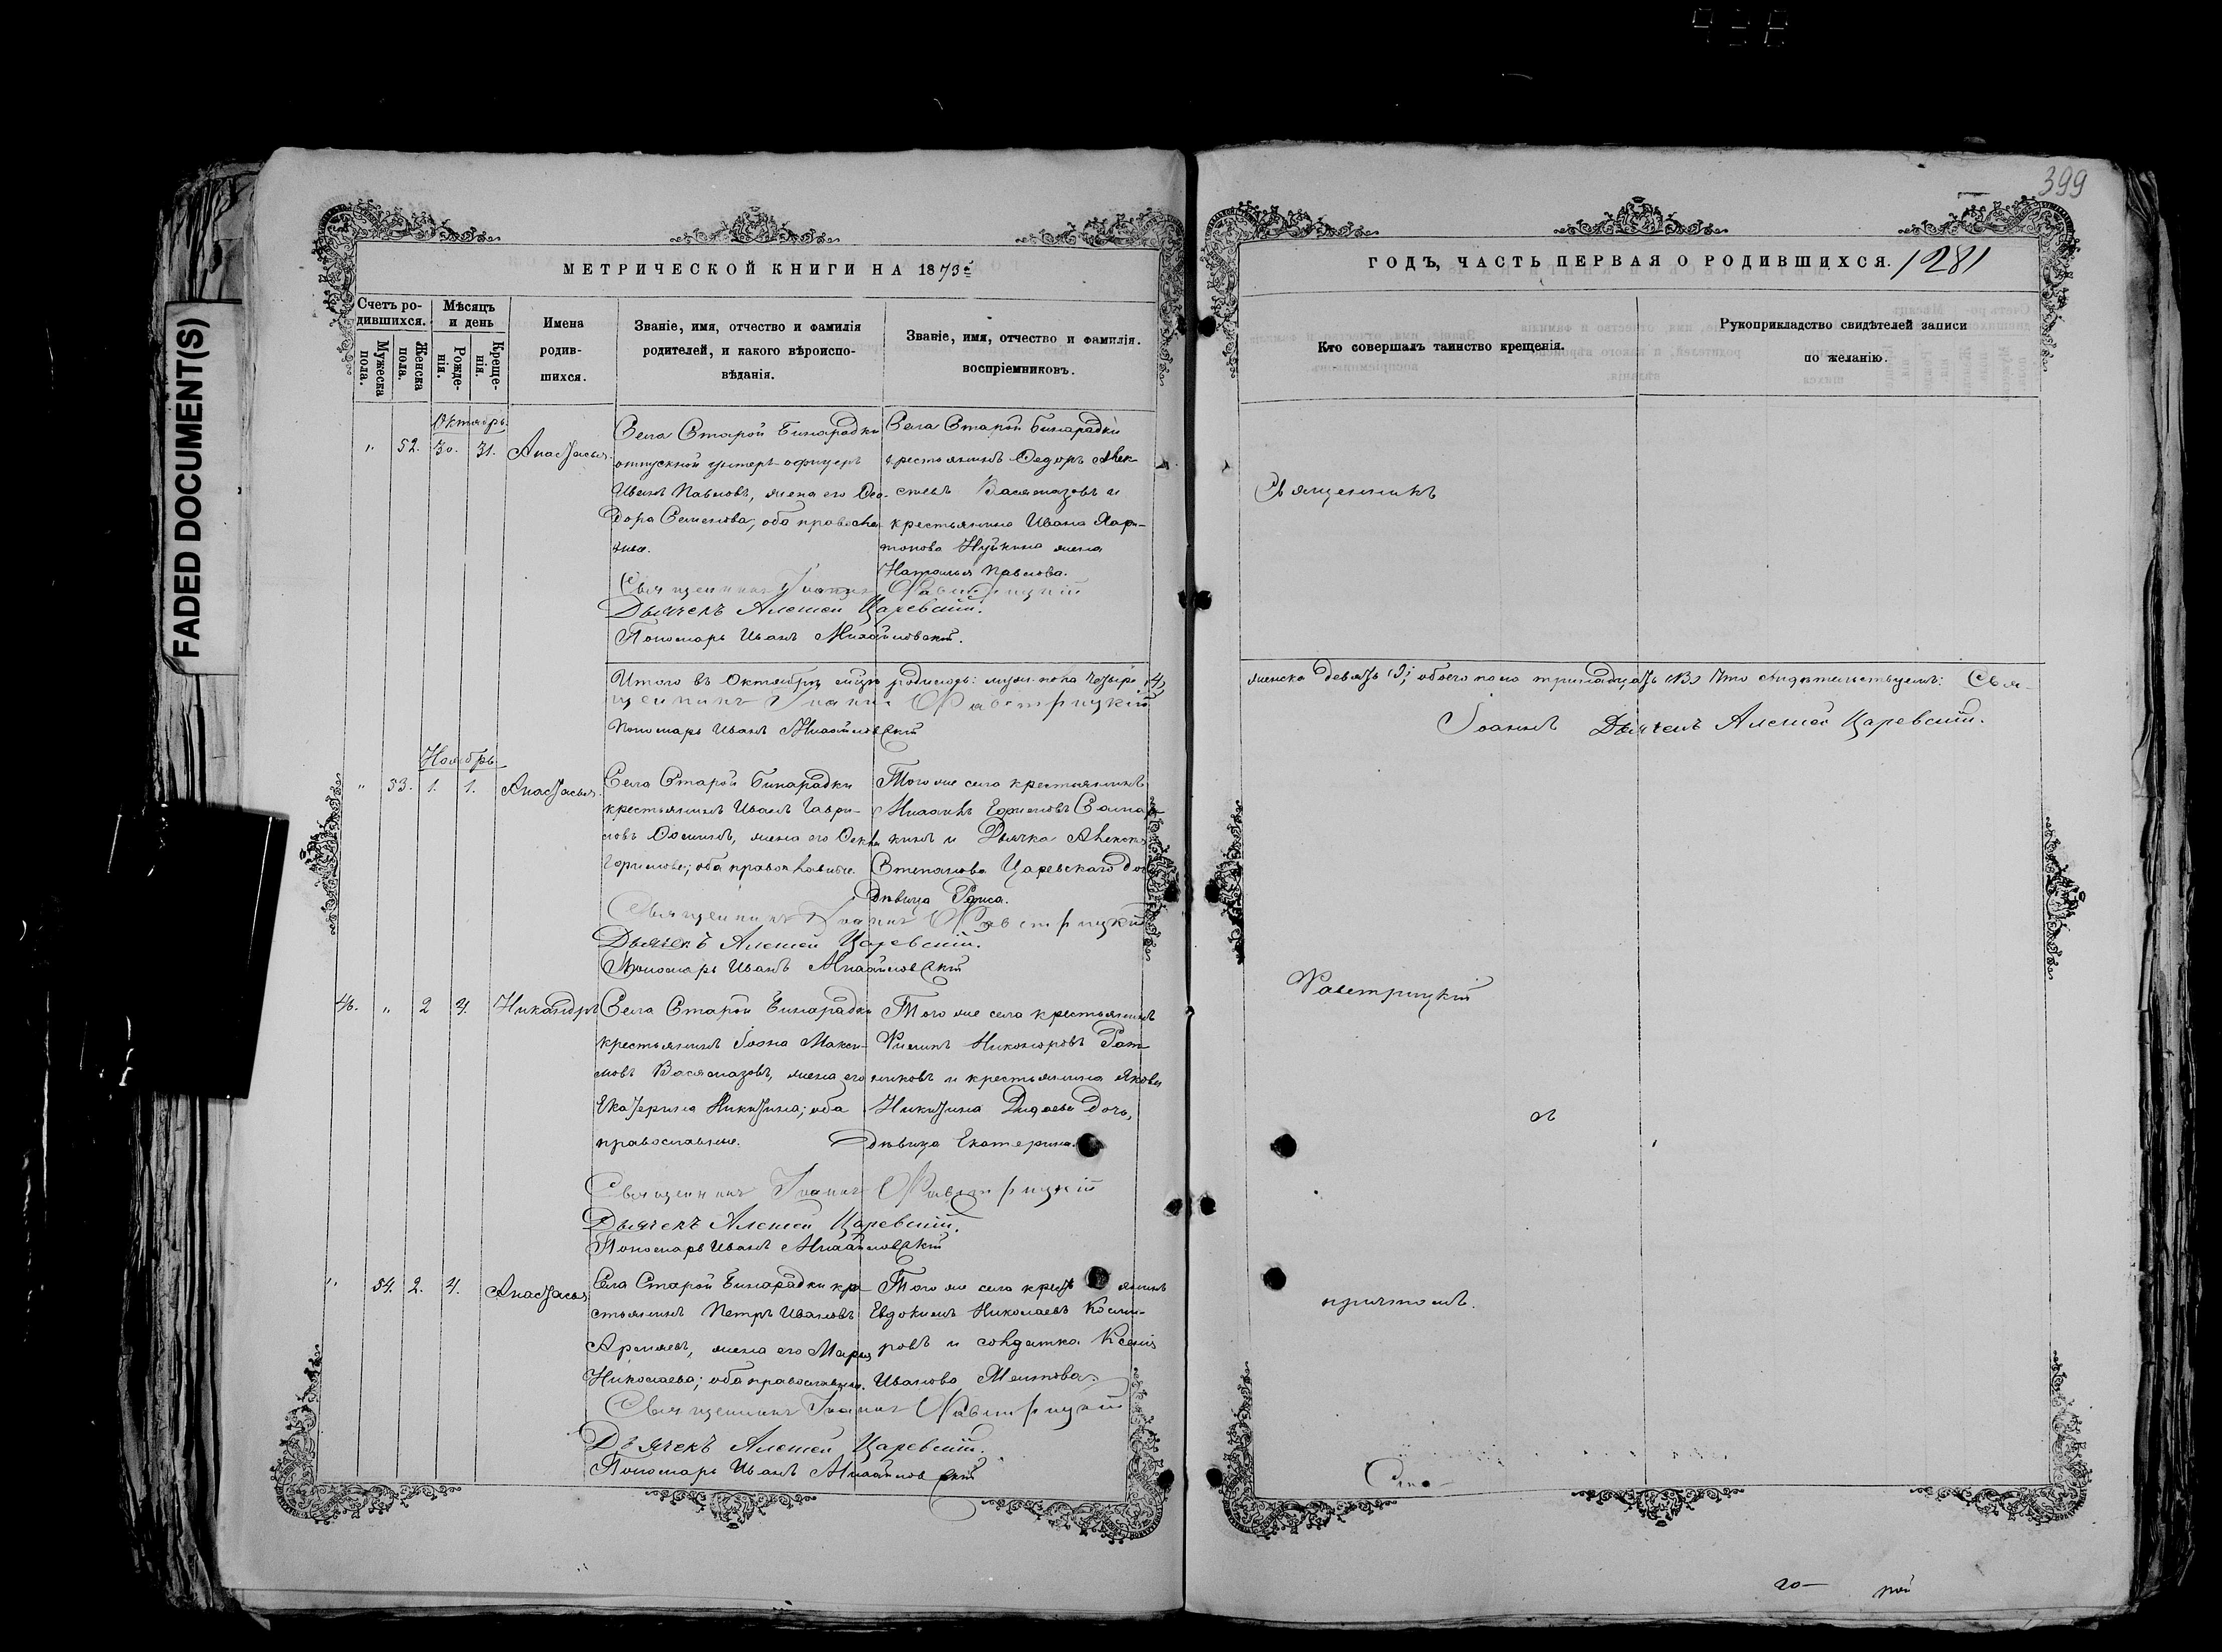 399
FADED DOCUMENT(S)
МЕТРИЧЕСКОЙ КНИГИ НА 1873й
ГОДЪ, ЧАСТЬ ПЕРВАЯ О РОДИВШИХСЯ. 1281
Счетъ ро-
дившихся.
Мужеска
пола.
Женска
пола.
Мѣсяцъ
и день
Рожде-
нія.
Креще-
нія.
Имена
родив-
шихся.
Званіе, имя, отчество и фамилія
родителей, и какого вѣроиспо-
вѣданія.
Званіе, имя, отчество и фамилія.
воспріемниковъ.
Кто совершалъ таинство крещенія.
Рукоприкладство свидѣтелей записи
по желанію.
Октябрь
" 52. 30. 31. Анастасья
Села Старой Бинарадки
отпускной унтеръ-офицеръ
Иванъ Павловъ, жена его Ѳео-
дора Семенова; оба православ-
ные.
Села Старой Бинарадки
крестьянинъ Ѳедоръ Алек-
сѣевъ и
крестьянина Ивана Хари-
тонова жена
Наталья Павлова.
Священникъ Іоаннъ Фавстрицкій
Дьячекъ Алексей Царевскій.
Пономарь Иванъ Михайловскій.
Священникъ
Итого въ Октябрѣ мцѣ родилось: муж. пола четыре (4)
женска девять (9); обоего пола тринадцать (13) Что свидѣтельствуемъ: Свя-
щенникъ Іоаннъ Фавстрицкій
Іоаннъ Дьячекъ Алексей Царевскій.
Пономарь Иванъ Михайловскій
Ноябрь
" 53. 1. 1. Анастасья.
Села Старой Бинарадки
крестьянинъ Иванъ Гаври-
ловъ жена его
оба православные.
Того же села крестьянинъ
Михаилъ Ефимовъ Сама-
кинъ и Дьячка Алексея
Степанова Царевскаго дочь
дѣвица Раиса.
Священникъ Іоаннъ Фавстрицкій
Дьячекъ Алексей Царевскій.
Пономарь Иванъ Михайловскій
Фавстрицкій
46. " 2 4. Никандръ
Села Старой Бинарадки
крестьянинъ Іоаннъ Макси-
мовъ жена его
Екатерина Никитина; оба
православные.
Того же села крестьянинъ
Филипъ Никоноровъ
и крестьянина Якова
Никитина дочь,
дѣвица Екатерина.
съ
Священникъ Іоаннъ Фавстрицкій
Дьячекъ Алексей Царевскій.
Пономарь Иванъ Михайловскій
" 54. 2. 4. Анастасья
Села Старой Бинарадки кре-
стьянинъ Петръ Ивановъ
жена его Марья
Николаева; оба православные.
Того же села крестьянинъ
Евдокимъ Николаевъ
и солдатка Ксенія
Иванова
причтомъ.
Священникъ Іоаннъ Фавстрицкій
Дьячекъ Алексей Царевскій.
Пономарь Иванъ Михайловскій
Ста-
ро- рой